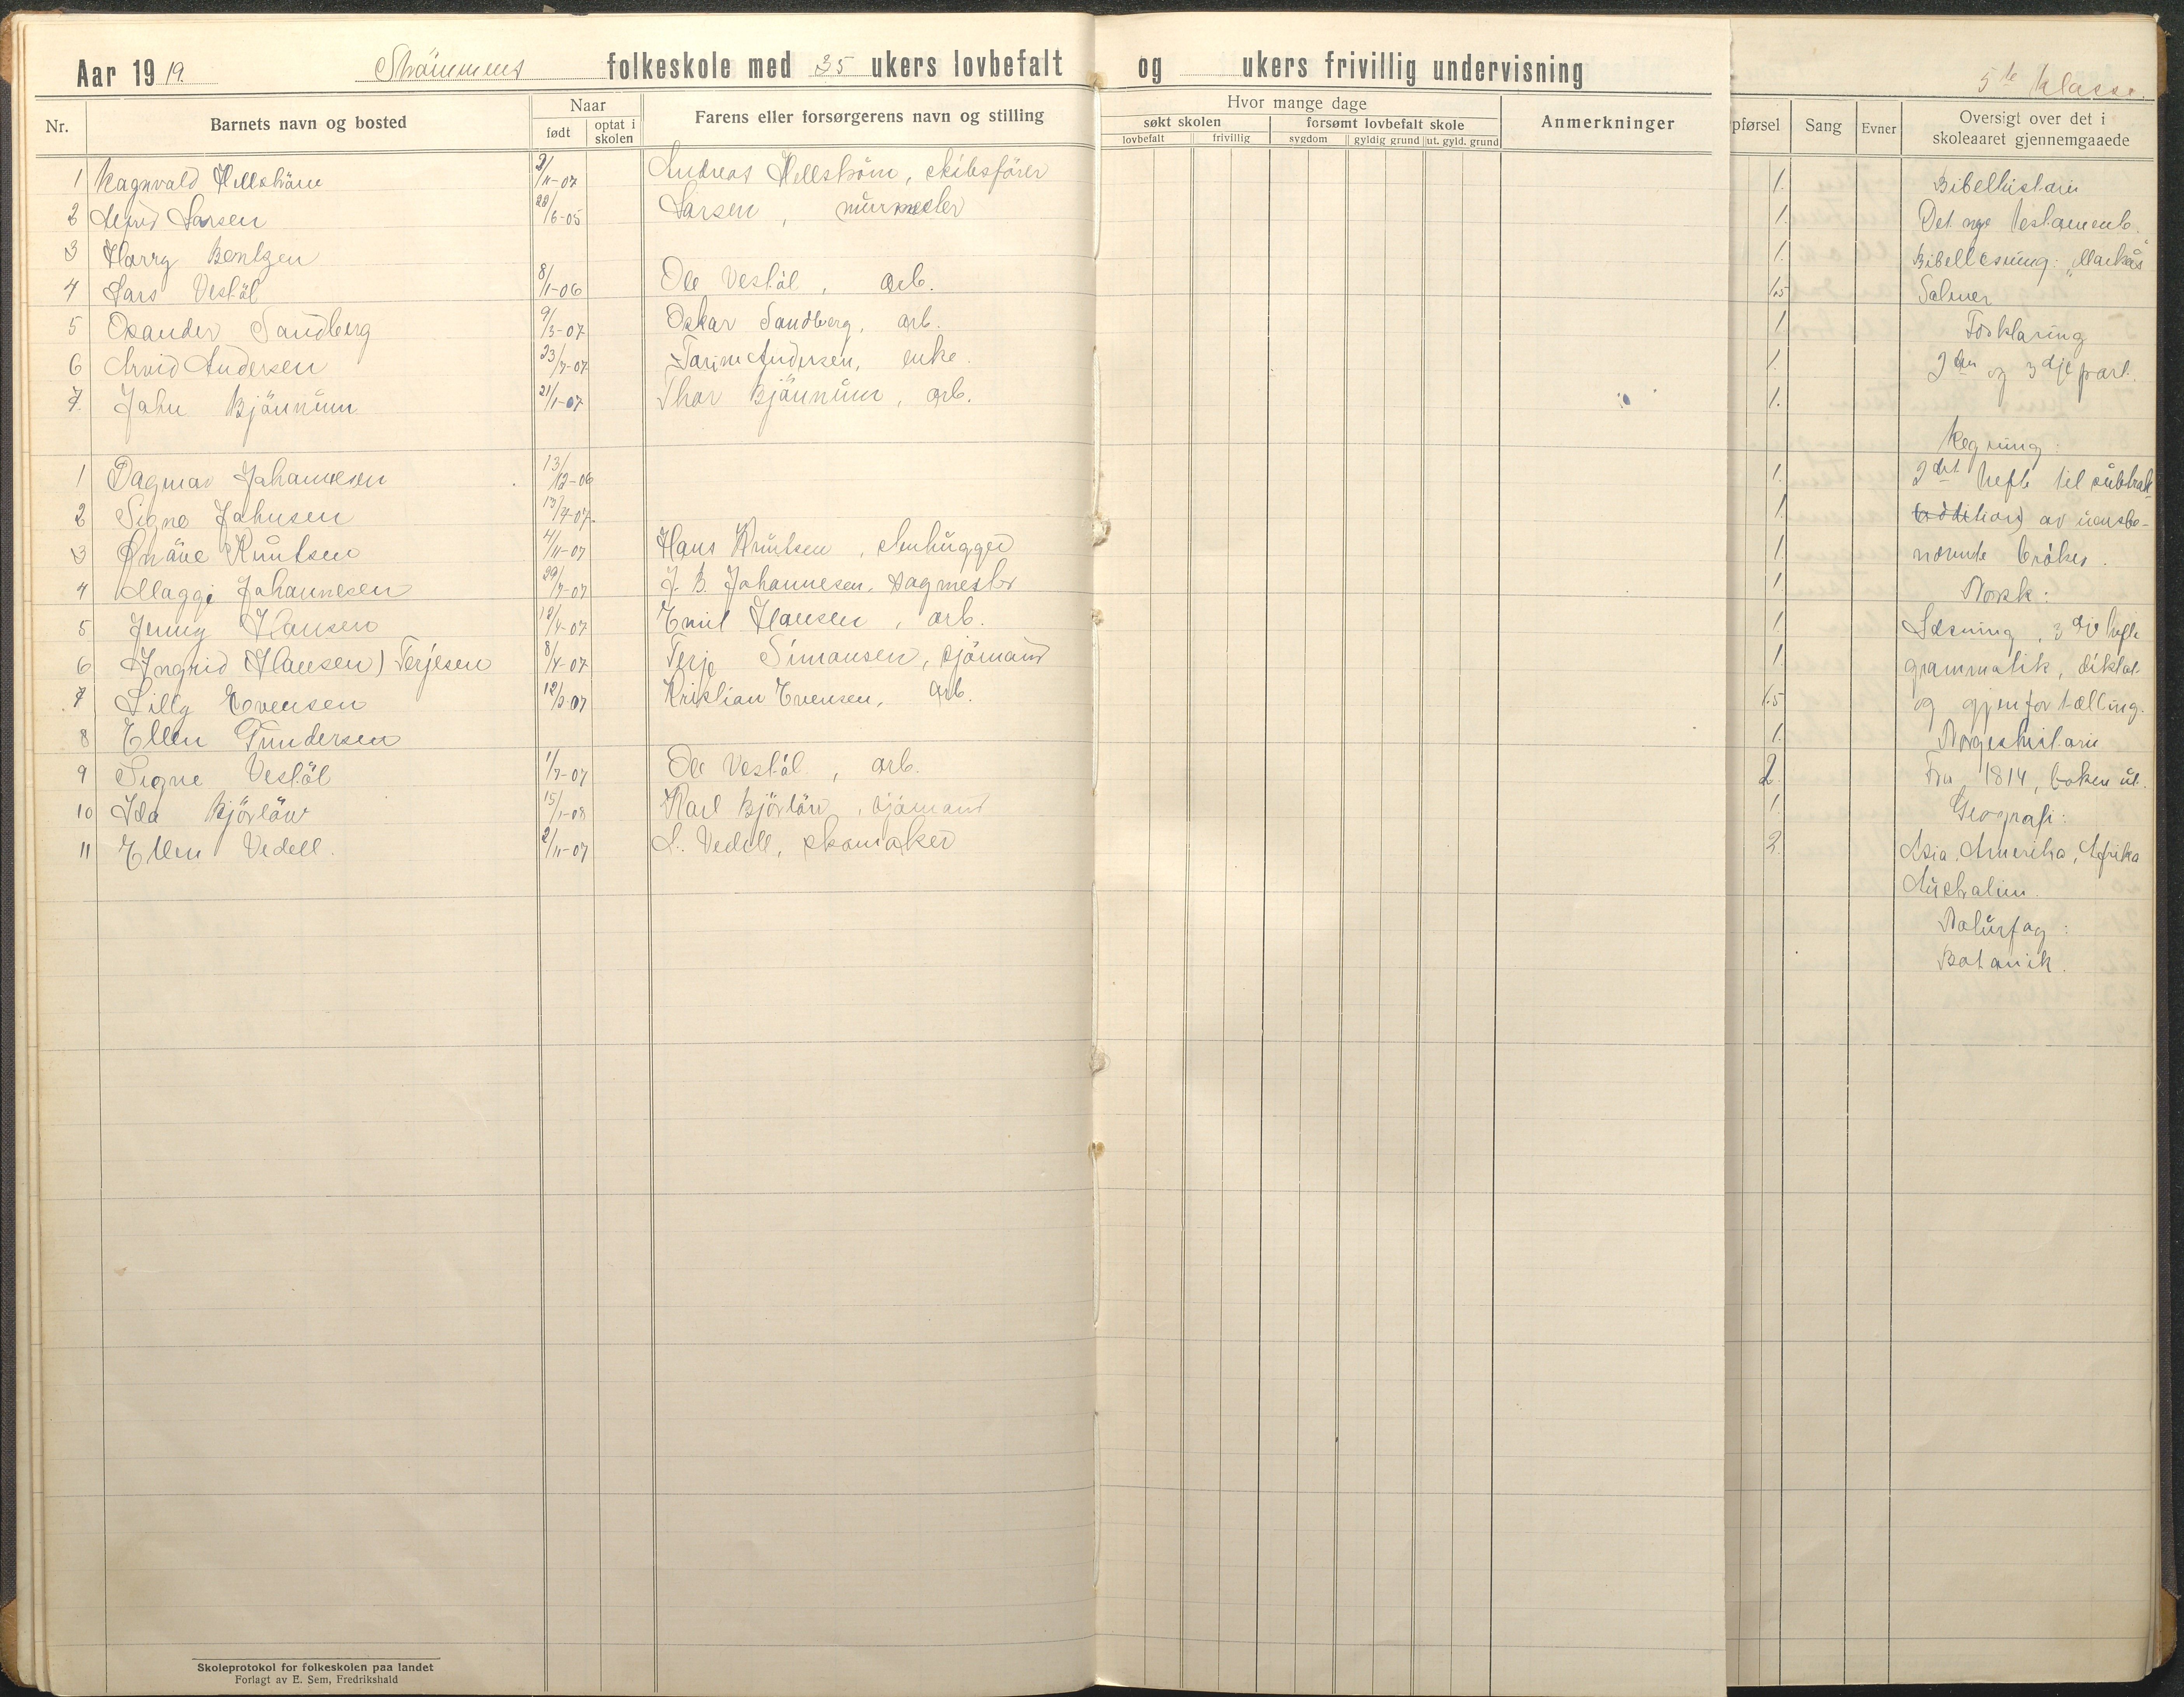 Aar 1919. Strömmens folkeskole med 35 ukers lovbefalt og ukers frivillig undervisning
5te klasse.
Nr. Barnets navn og bosted Naar født optat i skolen Farens eller forsørgerens navn og stilling
Hvor mange dage
søkt skolen forsømt lovbefalt skole
lovbefalt frivillig sygdom gyldig grund ut. gyld. grund
Anmerkninger
pførsel Sang Evner Oversigt over det i skoleaaret gjennemgaaede
1 Ragnvald Hellström 2/11-07 Andreas Hellström, skibsförer 1. Bibelhistorie
2 Larsen 28/6-05 Larsen, murmester 1. Det nye testamente.
3 Harry Bentzen 1. Bibellesning: "Markus"
4 Lars Vestöl 8/1-06 Ole Vestöl, arb. 1.5 Salmer
5 Osander Sandberg 9/3-07 Oskar Sandberg, arb. 1 Forklaring
6 Arvid Andersen 23/7-07 Andersen, enke. 1. 2den og 3dje part.
7. John Bjönnum 21/1-07 Thor Bjönnum, arb. 1.
Regning:
1 Dagmar Johannesen 13/12-06 1. 2det hefte til subtrak-
2 Signe Johnsen 13/7-07. 1 (addition) av uensbe-
3 Knutsen 4/11-07 Hans Knutsen, 1. nævnte bröker.
4 Maggi Johannesen 29/7-07 J. B. Johannesen, Sagmester 1. Norsk:
5 Jenny Hansen 12/4-07 Emil Hansen, arb. 1. Læsning, 3dje hefte
6 Ingrid (Hansen) Terjesen 8/4-07 Terje Simonsen, sjömand 1. grammatik, diktat
7 Lilly Evensen 12/3-07 Kristian Evensen, arb. 1.5 og gjenfortælling.
8 Ellen Gundersen 1. Norgeshistorie
9 Signe Vestöl 1/7-07 Ole Vestöl, arb. 2. Fra 1814, boken ut.
10 Ida Björlöw 15/1-08 Karl Björlöw, sjömand 1. Geografi:
11 Ellen Vedell. 2/11-07 L. Vedell, skomaker 2. Asia, Amerika, Afrika
Australien.
Naturfag:
Botanik.
Skoleprotokol for folkeskolen paa landet
Forlagt av E. Sem, Fredrikshald